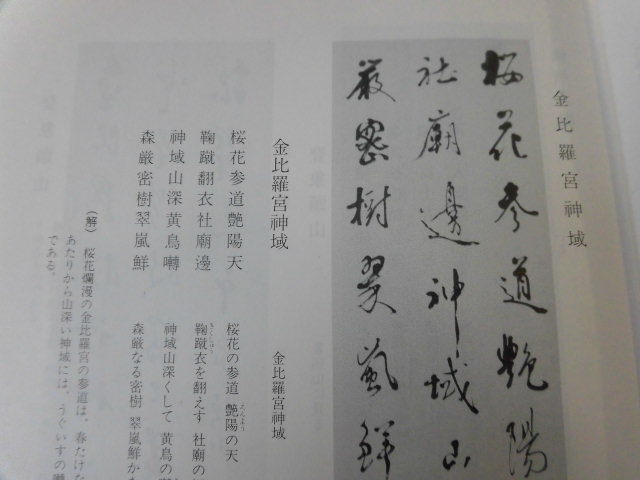 金比羅宮神域
桜花参道艶陽
社廟邊神域山
森厳密樹翠嵐鮮
金比羅宮神域
桜花参道艶陽天
鞠蹴翻衣社廟邊
神域山深黄鳥囀
森厳密樹翠嵐鮮
金比羅宮神域
桜花の参道 艶陽の天
えんよう
鞠蹴衣を翻えす 社廟の
きくしゅう
神域山深くして 黄鳥の囀
森厳なる密樹 翠嵐鮮かな
（解） 桜花爛漫の金比羅宮の参道は、春たけな
あたりから山深い神域には、うぐいすの囀
である。